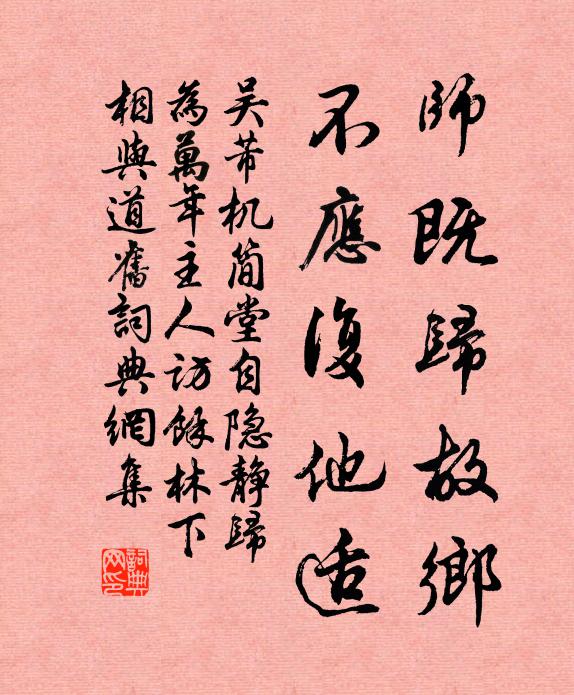 師既歸故鄉
不應復他适
吴芾机简堂自隐静歸
為萬年主人訪餘林下
相與道舊詞典網集
詞典
网印